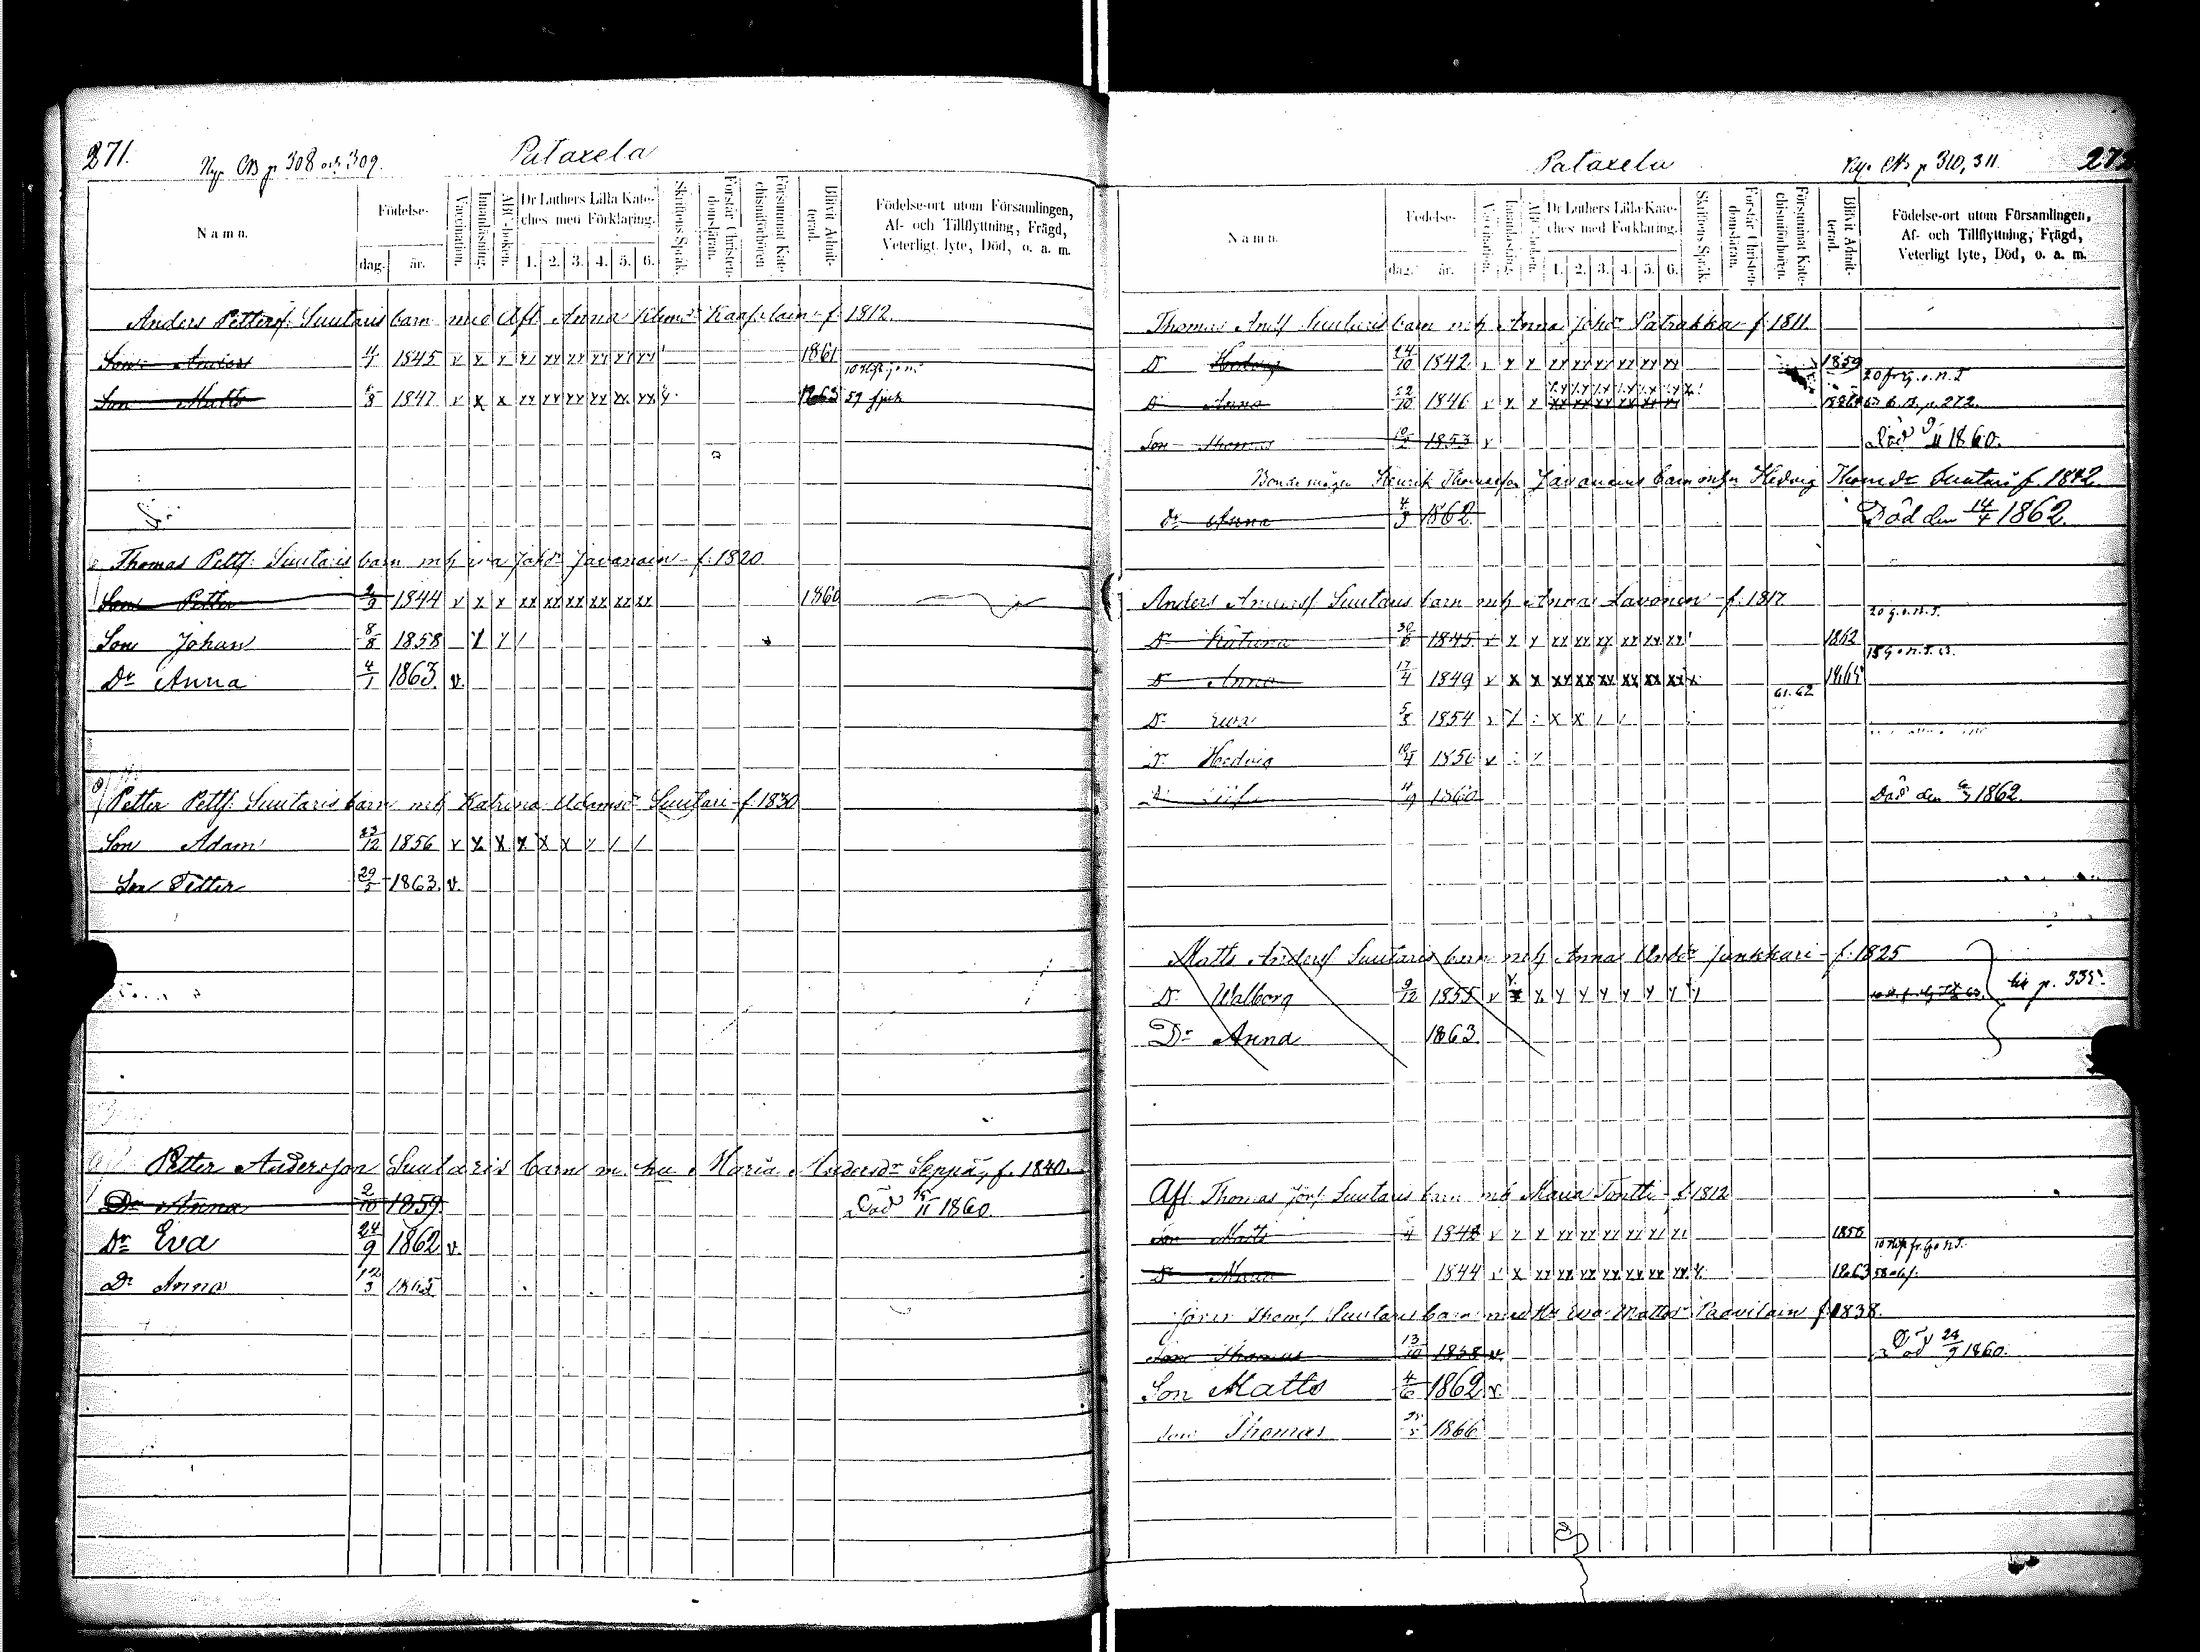 271.
Ny. CB p 308 och 309.
Pataxela
Namn.
Födelse-
dag.
år.
Vaccination.
Innanläsning.
ABC-boken.
Dr Luthers Lilla Kate-
ches med Förklaring.
1. 2. 3. 4. 5. 6.
Skriftens Språk.
Förstår Christen-
domsläran.
Försummat Kate-
chismiförhören
Blifvit Admit-
terad.
Födelse-ort utom Församlingen,
Af- och Tillflyttning, Frägd,
Veterligt lyte, Död, o. a. m.
Anders Petterss. Suutaris barn med Afl Anna Kaapelain f. 1812.
Son Anders 1845 v x x xx xx xx xx xx xx 1861
Son Matts 1847 v x x xx xx xx xx xx xx 1863 59 fjuk
Dr
Thomas Pettss. Suutaris barn mh Eva Johdr Javanain f. 1820
Son Petter 2/9 1844 v x x xx xx xx xx xx xx 1860
Son Johan 8/8 1858
Dr Anna 4/1 1863. v.
Petter Pettss. Suutaris barn mh Katrina Adamsdr Suutari f. 1830
Son Adam 23/12 1856 v x x x x x / / /
Son Petter 29/5 1863. v.
Petter Andersson Suutaris barn m. hu Maria Andersdr Seppä, f. 1840.
Dr Anna 2/10 1859. Död 15/11 1860.
Dr Eva 24/9 1862 v.
Dr Anna 12/3 1865
272
Pataxela
Ny. CB p 310, 311.
Namn.
Födelse-
dag.
år.
Vaccination.
Innanläsning.
ABC-boken.
Dr Luthers Lilla Kate-
ches med Förklaring.
1. 2. 3. 4. 5. 6.
Skriftens Språk.
Förstår Christen-
domsläran.
Försummat Kate-
chismiförhören.
Blifvit Admit-
terad.
Födelse-ort utom Församlingen,
Af- och Tillflyttning, Frägd,
Veterligt lyte, Död, o. a. m.
Thomas Andss Suutaris barn mh Anna Johdr Patrakka f. 1811.
Dr Hedvig 24/10 1842 v x x xx xx xx xx xx xx 1859
Dr Anna 22/10 1846 v x x xx xx xx xx xx xx p. 272.
Son Thomas 1853 v Död 9/11 1860.
Bondemågen Henrik Thomasson Javanains barn mhu Hedvig Thomdr Suutari f. 1842.
Dr Anna 4/3 1862. Död den 14/4 1862.
Anders Anderss Suutaris barn mh Anna Lavonen f. 1817.
Dr Katrina 30/6 1845 v x x xx xx xx xx xx xx 1862
Dr Anna 17/4 1849 v x x xx xx xx xx xx xx x 61.62 1865
Dr Eva 5/8 1854
Dr Hedvig 10/4 1856
Dr 1860 Död den 1862.
Matts Anderss Suutaris barn mh Anna Andsdr Junkkari f. 1825
Dr Walborg 9/12 1855 p. 335.
Dr Anna 1863
Afl. Thomas Jörss. Suutaris barn mh Maria Tontti f. 1812
Son Matts 1842 v x x xx xx xx xx xx xx
Dr 1844 v x xx xx xx xx xx xx xx x 1863
Jören Thomss Suutaris barn med hu Eva Mattsdr Paavilain f. 1838.
Son Thomas 13/10 1858 v. Död 24/9 1860.
Son Matts 4/6 1862 v.
Son Thomas 1866